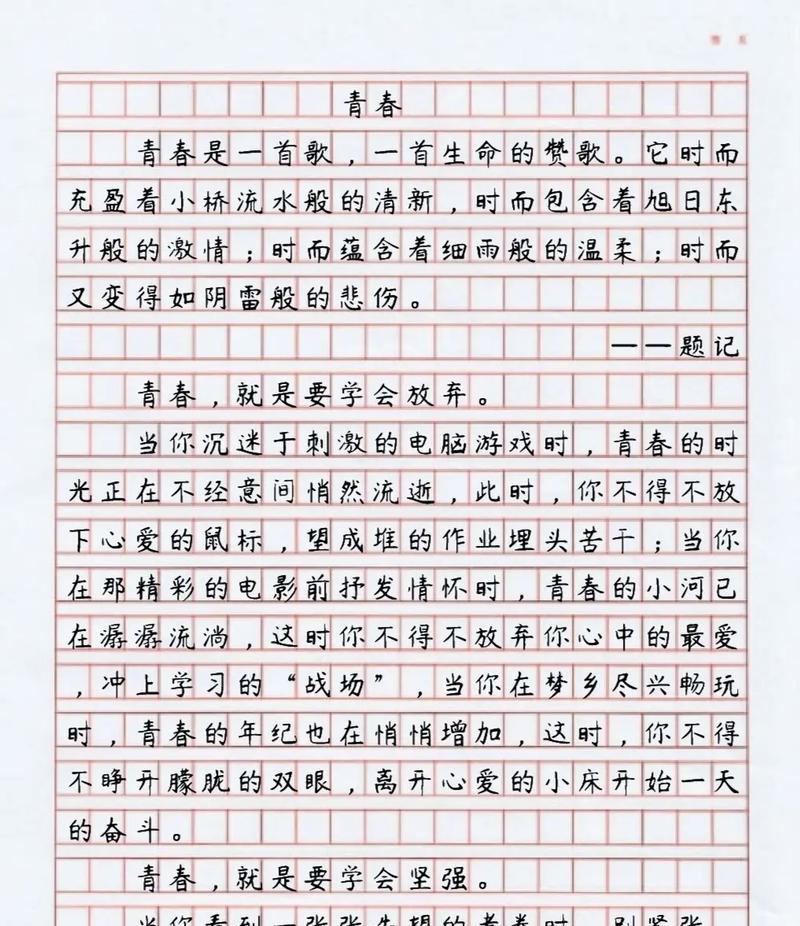 青春
青春是一首歌，一首生命的赞歌。它时而
充盈着小桥流水般的清新，时而包含着旭日东
升般的激情；时而蕴含着细雨般的温柔；时而
又变得如阴雷般的悲伤。
——题记
青春，就是要学会放弃。
当你沉迷于刺激的电脑游戏时，青春的时
光正在不经意间悄然流逝，此时，你不得不放
下心爱的鼠标，望成堆的作业埋头苦干；当你
在那精彩的电影前抒发情怀时，青春的小河已
在潺潺流淌，这时你不得不放弃你心中的最爱
，冲上学习的“战场”，当你在梦乡尽兴畅玩
时，青春的年纪也在悄悄增加，这时，你不得
不睁开朦胧的双眼，离开心爱的小床开始一天
的奋斗。
青春，就是要学会坚强。
当你看到一张张失望的考卷时，别紧张，